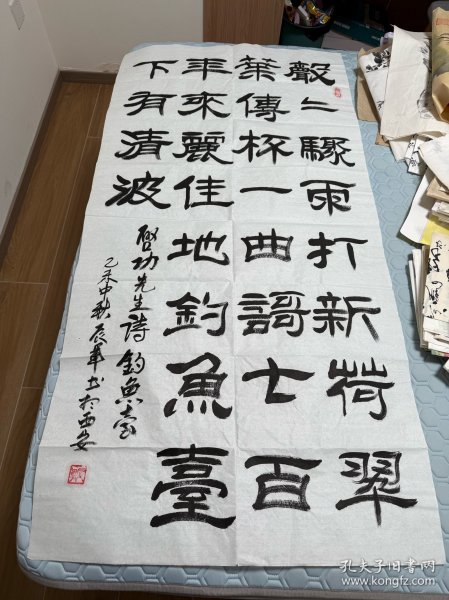 聲〻驟雨打新荷翠
葉傳杯一曲謌七百
年來麗佳地釣魚臺
下有清波
啓功先生詩釣魚臺
乙未中秋辰華书於西安
孔夫子旧书网
www.kongfz.com